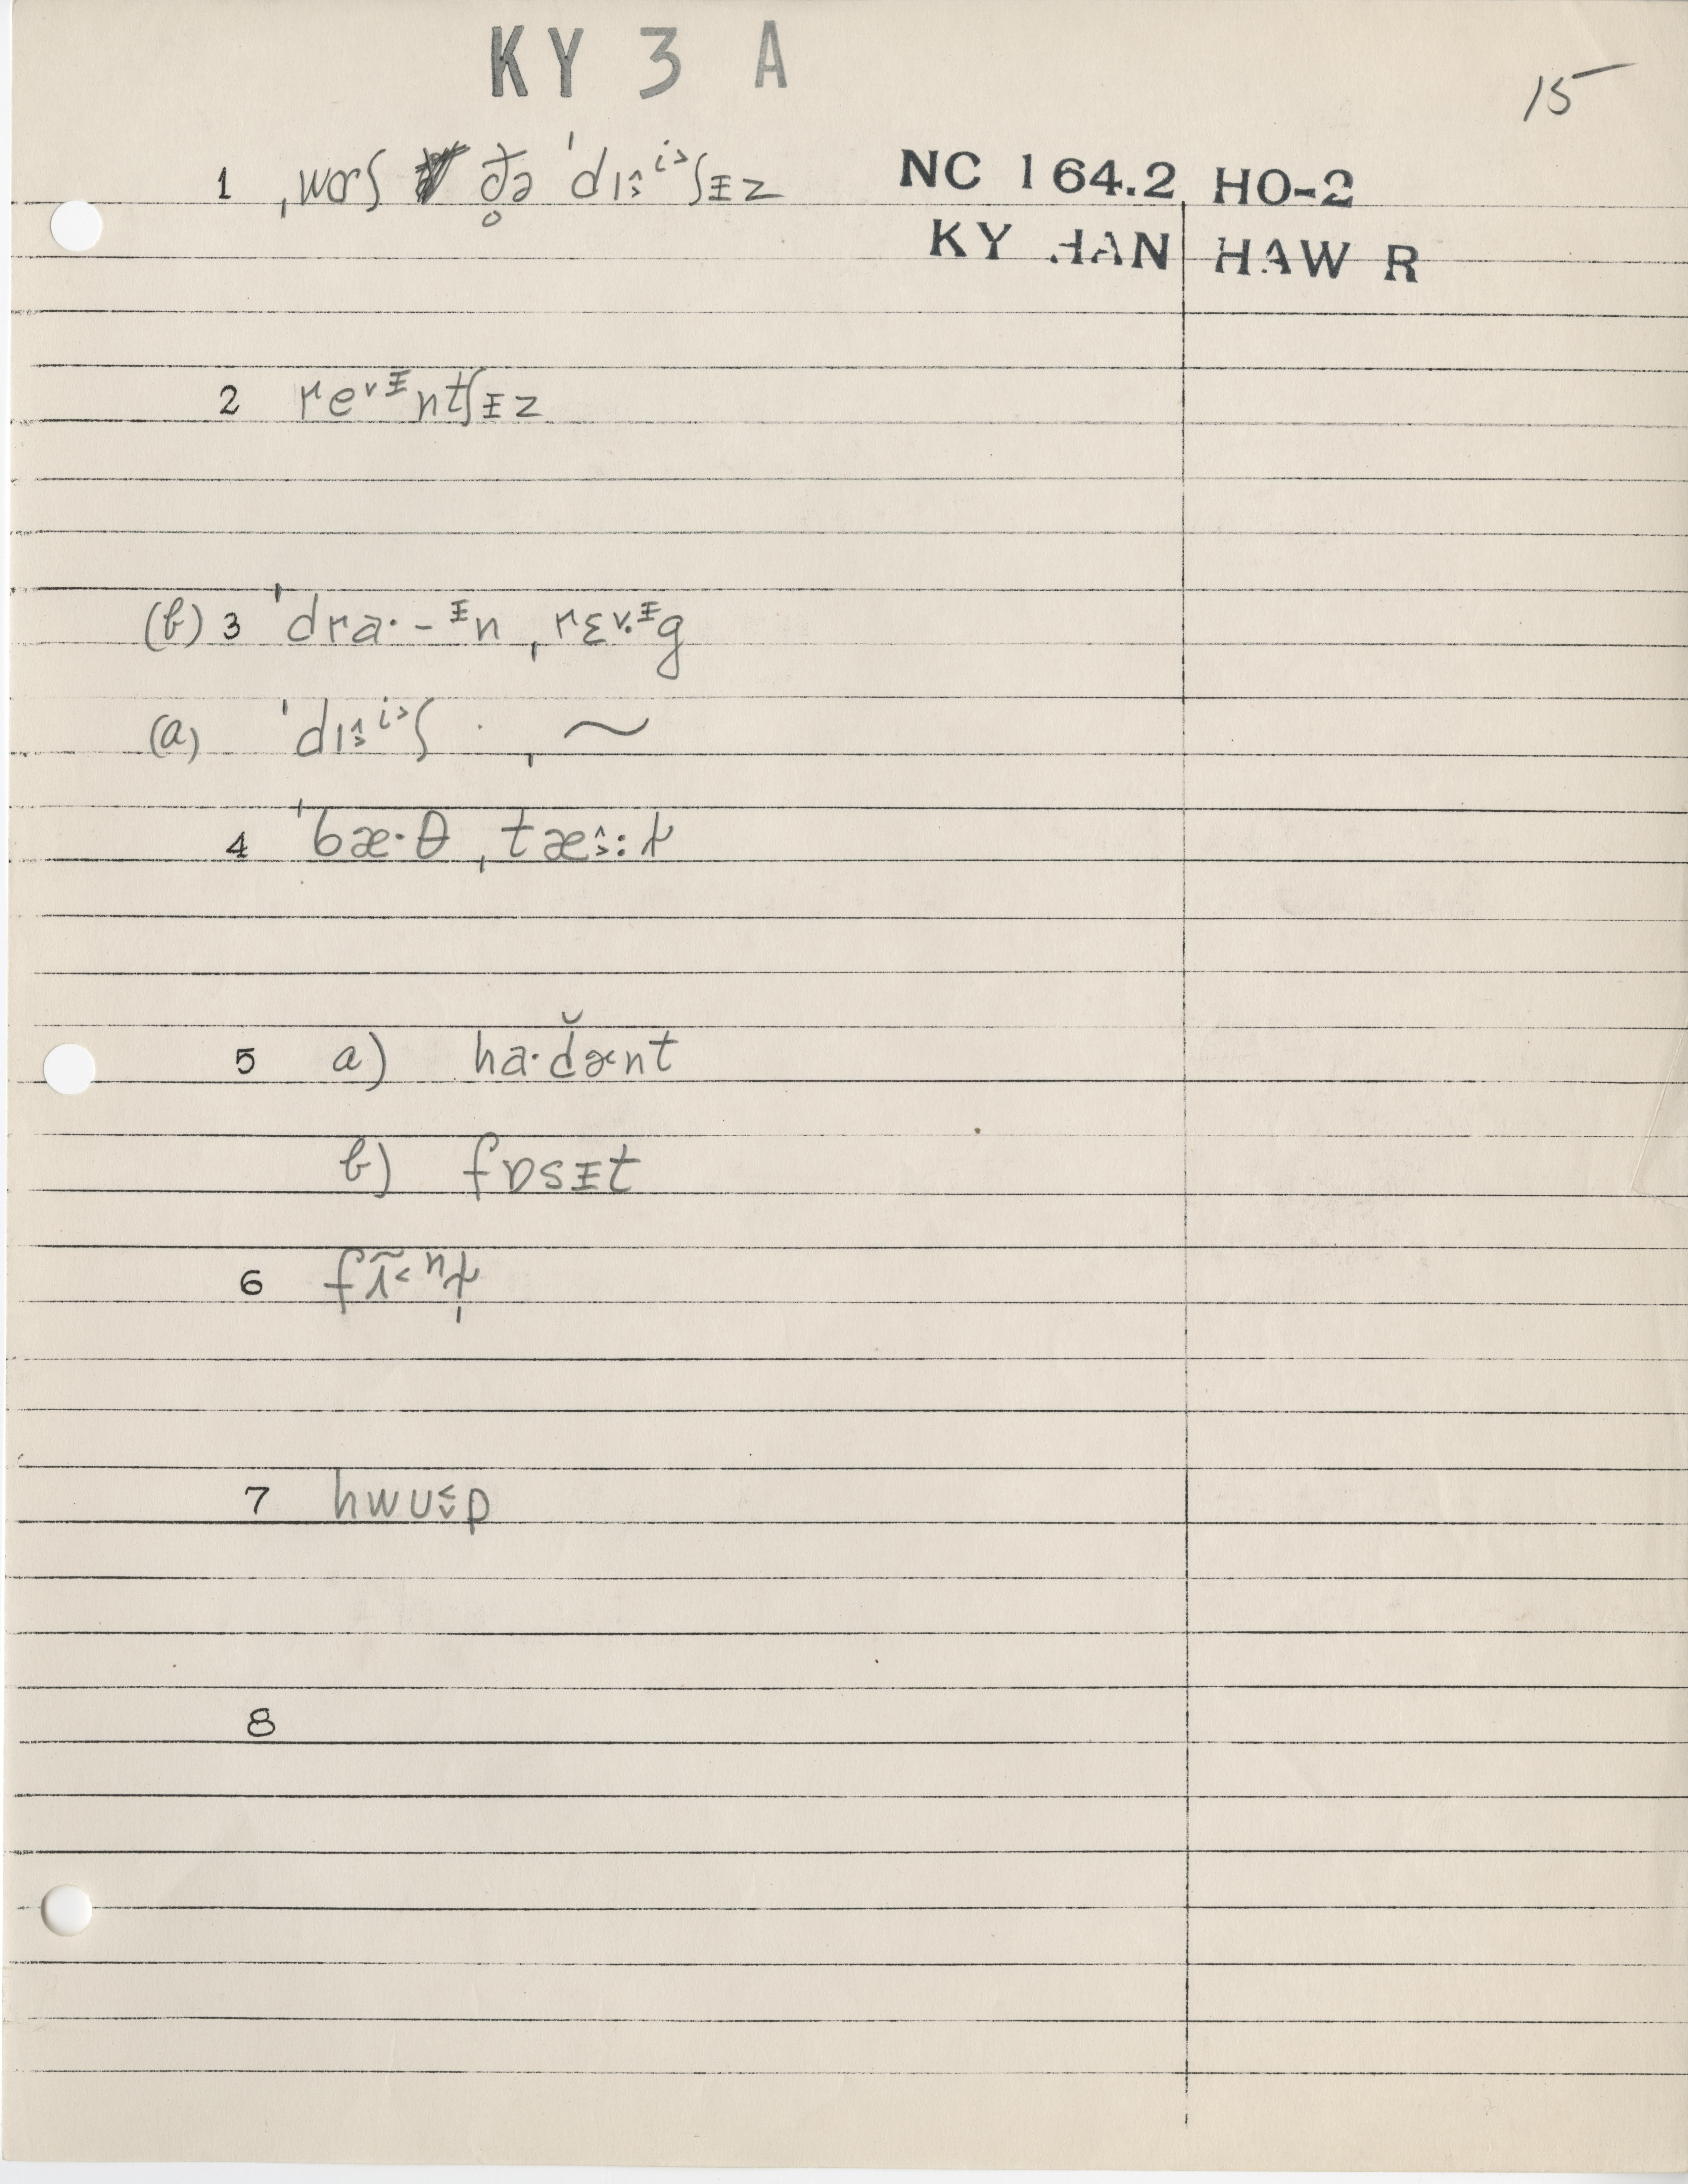 KY 3 A
15
NC 164.2 HO-2
KY HAN HAW R
1 ˌwɑʃ ðə̥ ˈdɪ^ˇⁱ˃ʃᵻz
2 reᵛᵻntʃᵻz
(b) 3 ˈdra·-ᵻn ˌrɛᵛ·ᵻg
(a) ˈdɪ^ˇⁱ˃ʃ ˌ~
4 ˈbæ·θ ˌtæ^ˇ:ɫ
5 a) ha·d̆ənt
b) fɒsᵻt
6 fɪ̃˂ⁿɫ̩
7 hwu˂ˇp
8